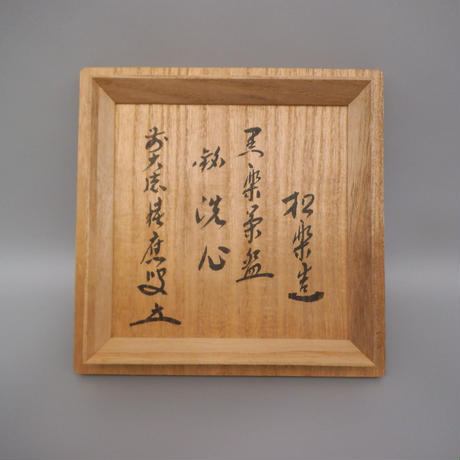 松楽造
黒楽茶盌
銘 洗心
前大徳